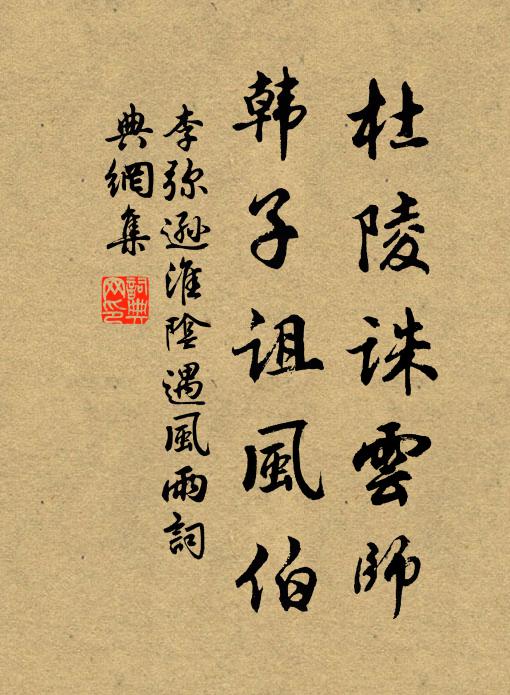 杜陵誅雲師
韩子詛風伯
李弥遜淮陰遇風雨詞
典網集
詞典
网印